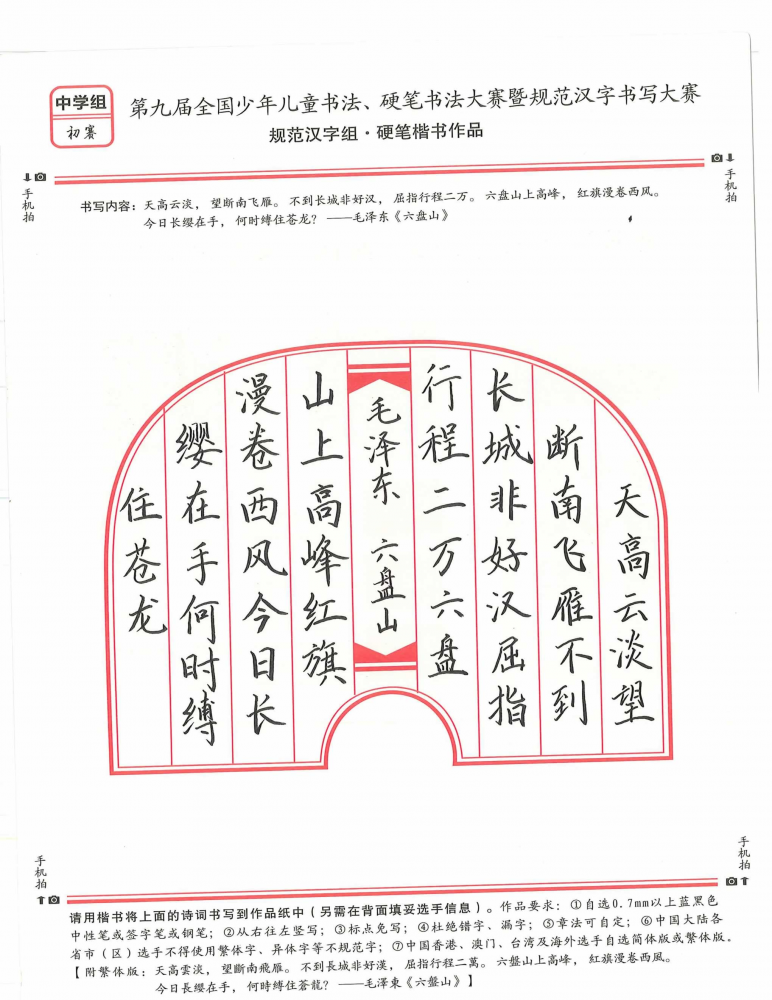 中学组
初赛
第九届全国少年儿童书法、硬笔书法大赛暨规范汉字书写大赛
规范汉字组·硬笔楷书作品
手机拍
手机拍
书写内容：天高云淡，望断南飞雁。不到长城非好汉，屈指行程二万。六盘山上高峰，红旗漫卷西风。
今日长缨在手，何时缚住苍龙？——毛泽东《六盘山》
天高云淡望
断南飞雁不到
长城非好汉屈指
行程二万六盘
毛泽东 六盘山
山上高峰红旗
漫卷西风今日长
缨在手何时缚
住苍龙
手机拍
手机拍
请用楷书将上面的诗词书写到作品纸中（另需在背面填妥选手信息）。作品要求：①自选0.7mm以上蓝黑色
中性笔或签字笔或钢笔；②从右往左竖写；③标点免写；④杜绝错字、漏字；⑤章法可自定；⑥中国大陆各
省市（区）选手不得使用繁体字、异体字等不规范字；⑦中国香港、澳门、台湾及海外选手自选简体版或繁体版。
【附繁体版：天高雲淡，望斷南飛雁。不到長城非好漢，屈指行程二萬。六盤山上高峰，紅旗漫卷西風。
今日長纓在手，何時縛住蒼龍？——毛澤東《六盤山》】